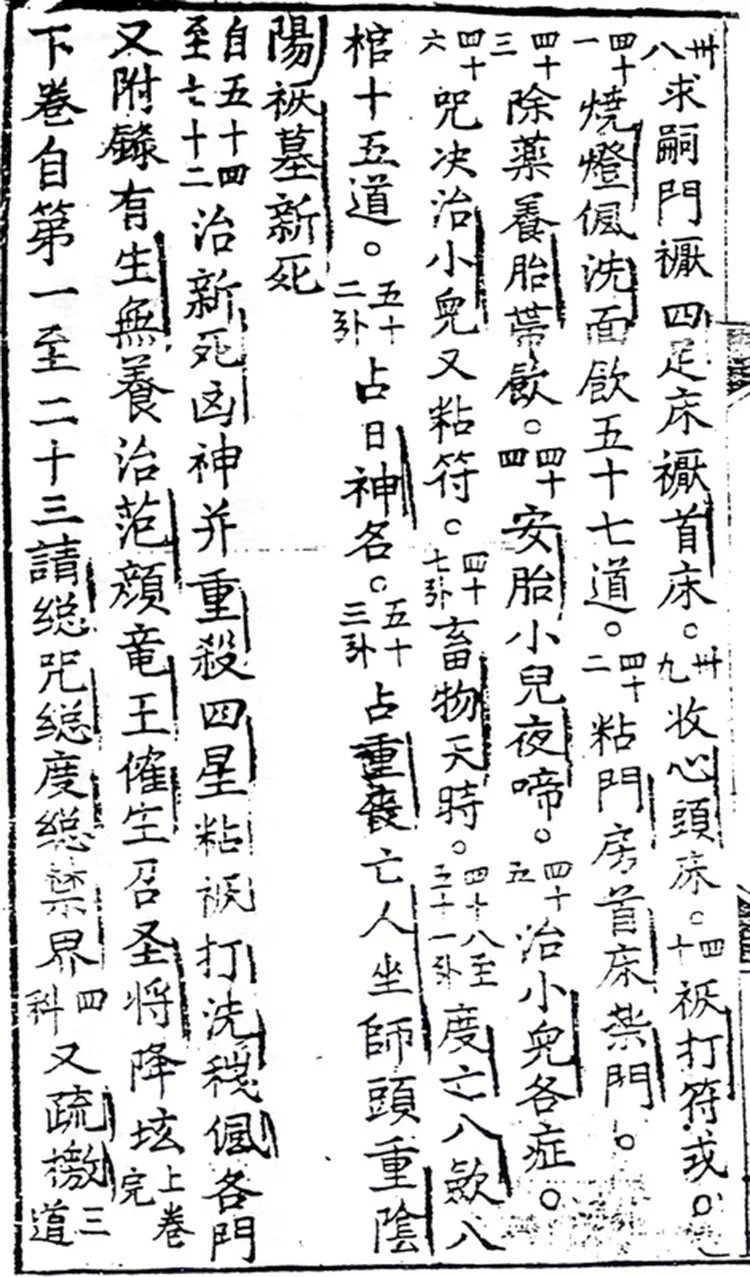 卅八求嗣門禳四足床禳首床。卅九收心頭床。四十袄打符或。
四十一燒燈偑洗面飲五十七道。四十二粘門房首床禁門。
四十三除藥養胎蒂歛。四十四安胎小兒夜啼。四十五治小兒各症。
四十六咒决治小兒又粘符。四十七卦畜物天時。四十八至五十一卦度亡八歛八
棺十五道。五十二卦占日神名。五十三卦占重喪亡人坐師頭重陰
陽袄墓新死
自五十四至七十二治新死凶神并重殺四星粘袄打洗穏偑各門
又附錄有生無養治范顏竜王催生召圣将降坛上卷完
下卷自第一至二十三請総咒総度総禁界四科又疏檄三道